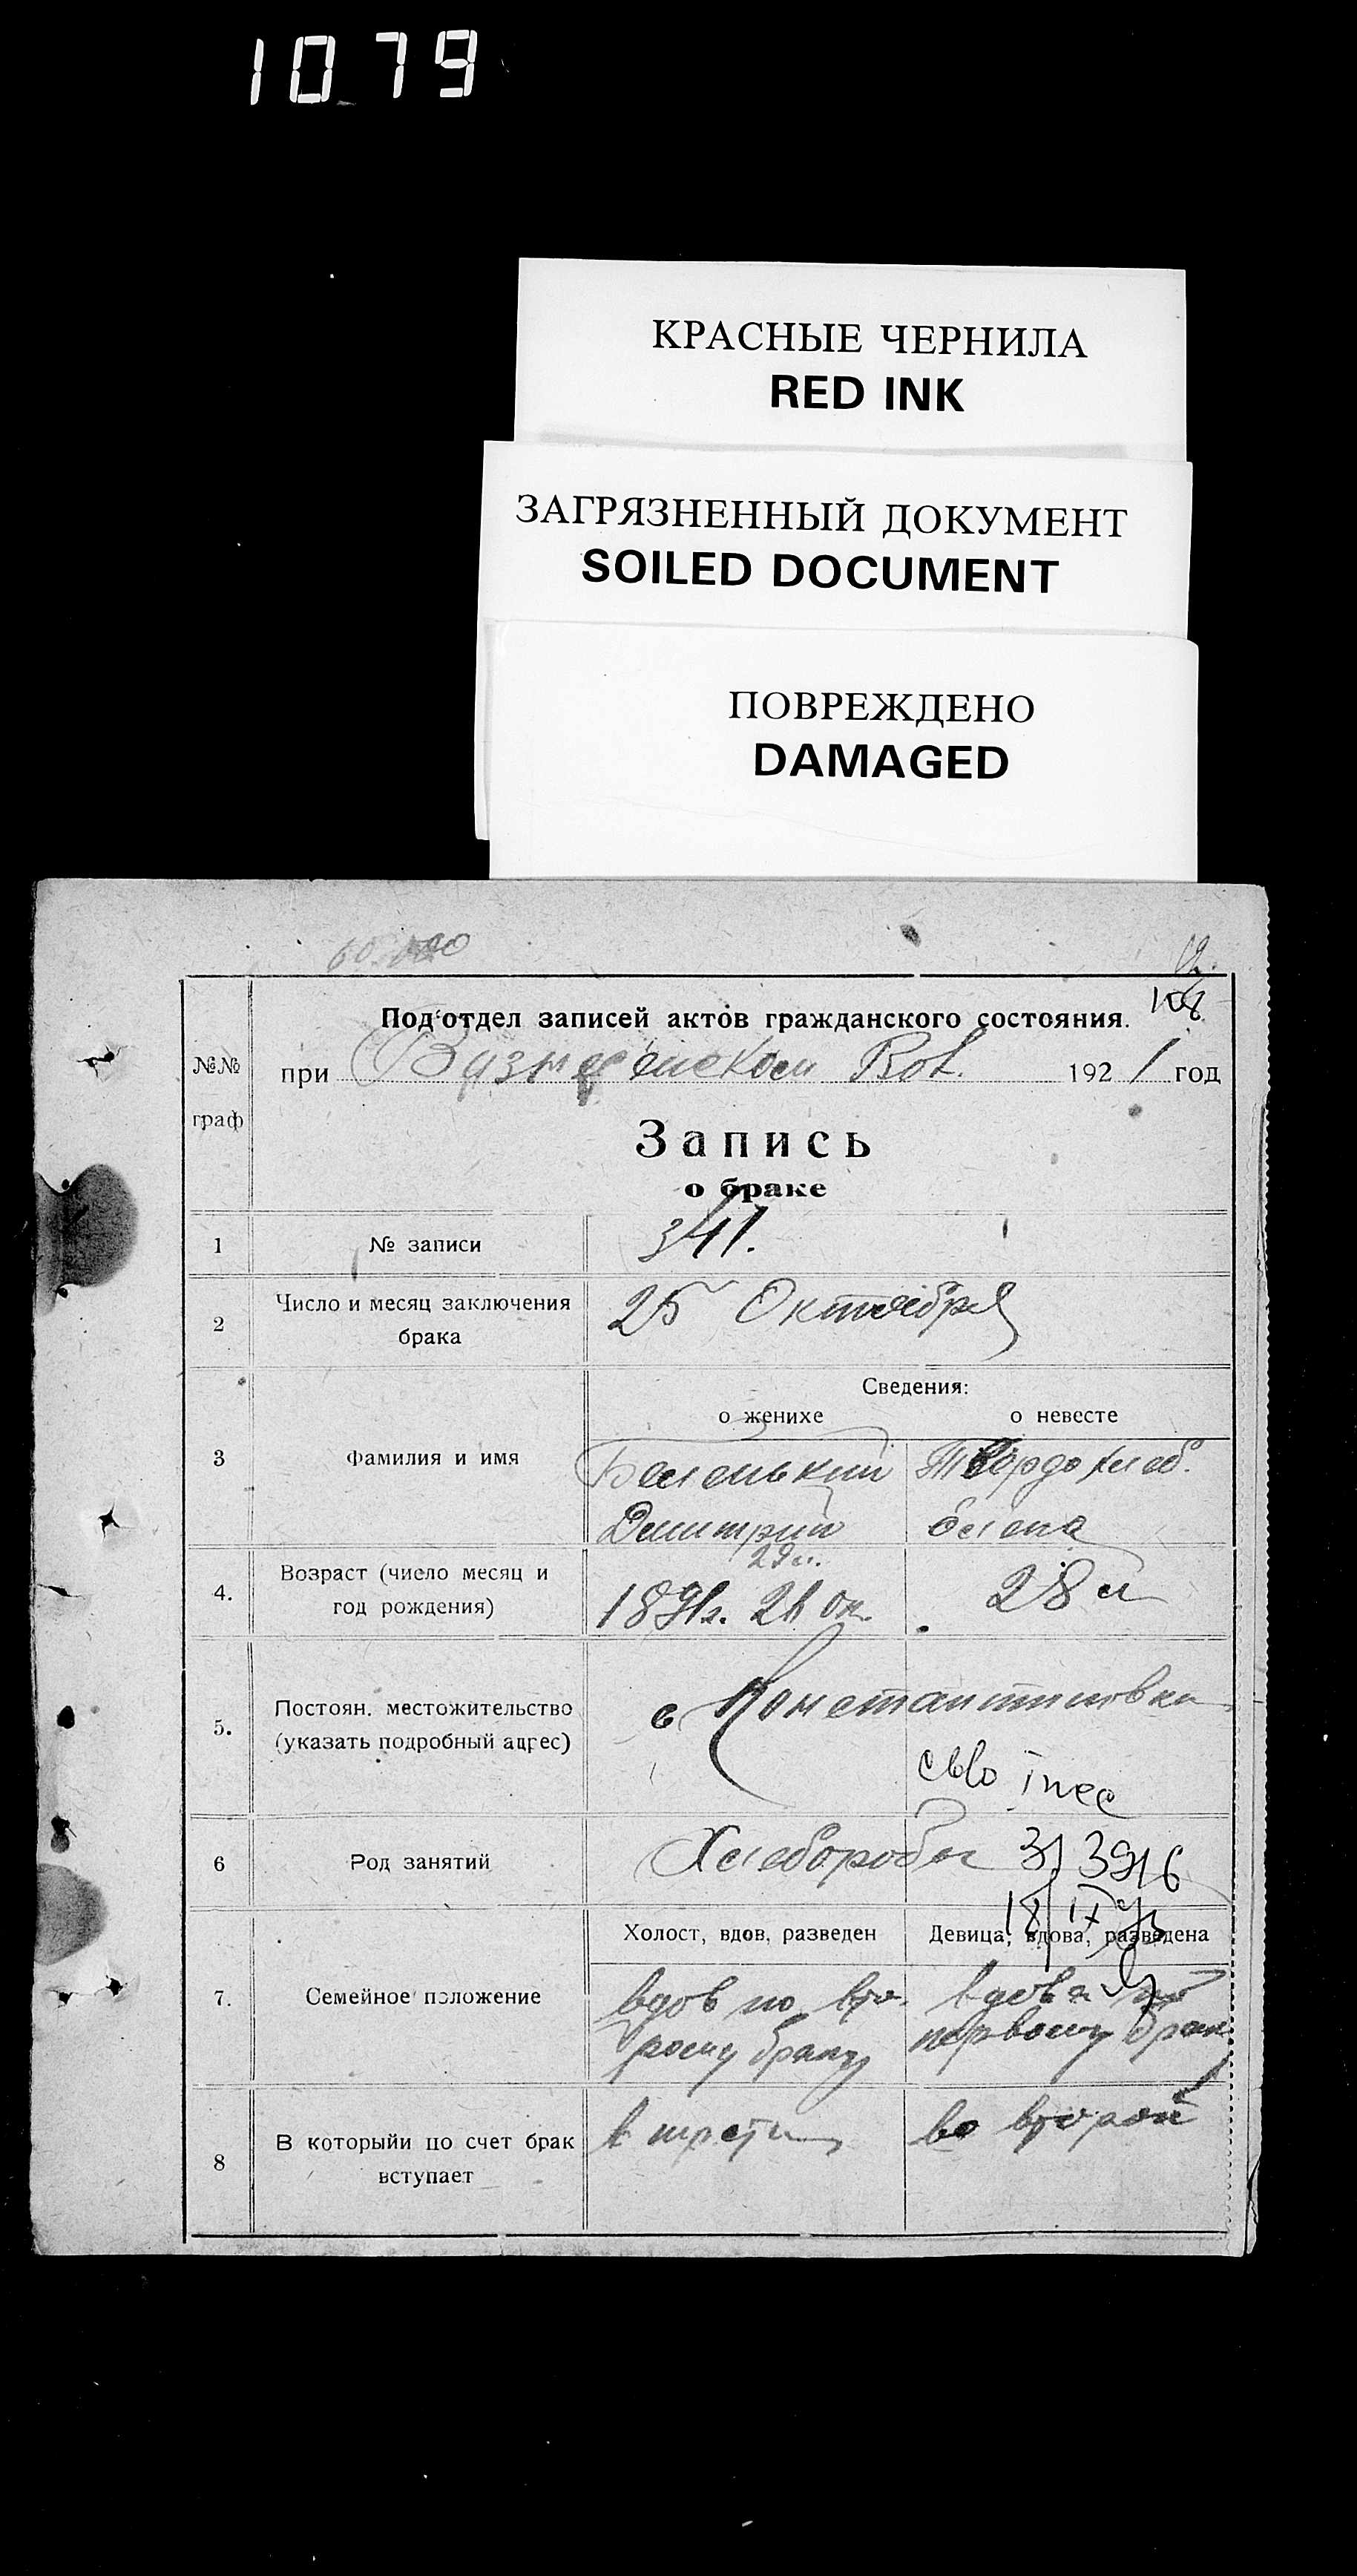 1079
КРАСНЫЕ ЧЕРНИЛА
RED INK
ЗАГРЯЗНЕННЫЙ ДОКУМЕНТ
SOILED DOCUMENT
ПОВРЕЖДЕНО
DAMAGED
108
Под'отдел записей актов гражданского состояния.
№№ граф
при 1921 год
Запись
о браке
1 № записи 341.
2 Число и месяц заключения брака 25 Октября
Сведения:
о женихе о невесте
3 Фамилия и имя
Беленький Твердохлеб.
Дмитрий Елена
29 л.
4. Возраст (число месяц и год рождения) 28 л
5. Постоян. местожительство
(указать подробный адрес)
с Константиновка
6 Род занятий Хлеборобы
Холост, вдов, разведен Девица, вдова, разведена
7. Семейное положение
вдов по вто- вдова по
рому браку первому браку
8 В которыйи по счет брак вступает
в третий во второй